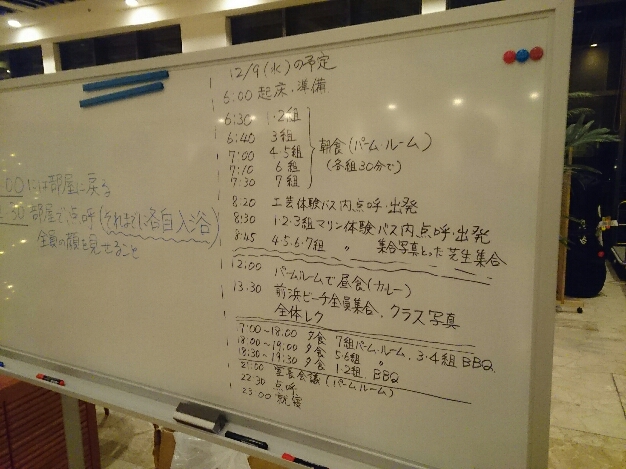 00には部屋に戻る
30 部屋で点呼(それまでに各自入浴)
全員の顔を見せること
12/9(水)の予定
6:00 起床、準備
6:30 1・2組
6:40 3組
7:00 4・5組
7:10 6組
7:30 7組
朝食(パームルーム)
(各組30分で)
8:20 工芸体験バス内、点呼・出発
8:30 1・2・3組マリン体験バス内、点呼・出発
8:45 4・5・6・7組 〃 集合写真とった芝生集合
12:00 パームルームで昼食(カレー)
13:30 前浜ビーチ全員集合、クラス写真
全体レク
7:00~18:00 夕食 7組パームルーム、3・4組BBQ
18:00~19:00 夕食 5・6組 〃
18:30~19:30 夕食 1・2組 BBQ
21:00 室長会議(パームルーム)
22:30 点呼
23:00 就寝